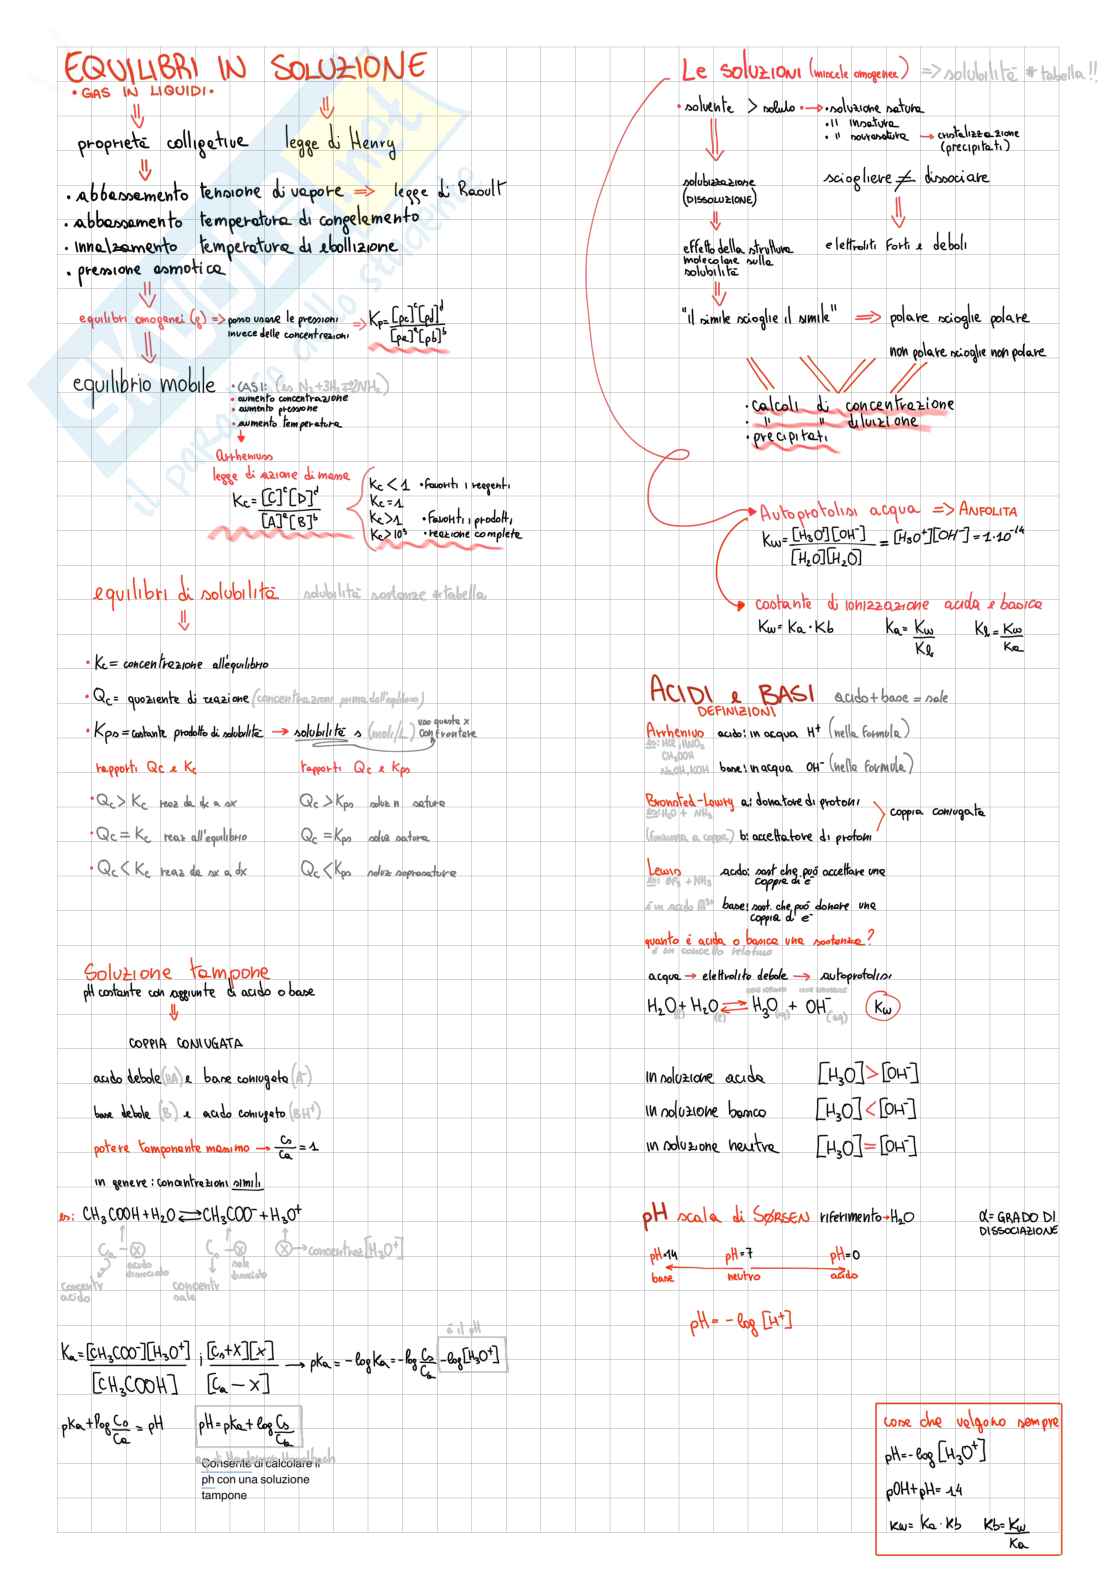 EQUILIBRI IN SOLUZIONE
• GAS IN LIQUIDI •
proprietà colligative legge di Henry
• abbassamento tensione di vapore => legge di Raoult
• abbassamento temperatura di congelamento
• innalzamento temperatura di ebollizione
• pressione osmotica
equilibri omogenei (g) => posso usare le pressioni invece delle concentrazioni => Kp = [pc]^c [pd]^d / [pa]^a [pb]^b
equilibrio mobile • CASI: (es N₂+3H₂⇌2NH₃)
• aumento concentrazione
• aumento pressione
• aumento temperatura
Arrhenius
legge di azione di massa
Kc = [C]^c [D]^d / [A]^a [B]^b
Kc < 1 • favoriti i reagenti
Kc = 1
Kc > 1 • favoriti i prodotti
Kc > 10³ • reazione completa
equilibri di solubilità solubilità sostanze # tabella
• Kc = concentrazione all'equilibrio
• Qc = quoziente di reazione (concentrazioni prima dell'equilibrio)
• Kps = costante prodotto di solubilità → solubilità s (moli/L) uso questa x confrontare
rapporti Qc e Kc rapporti Qc e Kps
• Qc > Kc reaz da dx a sx Qc > Kps soluz n satura
• Qc = Kc reaz all'equilibrio Qc = Kps soluz satura
• Qc < Kc reaz da sx a dx Qc < Kps soluz soprasatura
Soluzione tampone
pH costante con aggiunte di acido o base
COPPIA CONIUGATA
acido debole (HA) e base coniugata (A⁻)
base debole (B) e acido coniugato (BH⁺)
potere tamponante massimo → Cs/Ca = 1
in genere: concentrazioni simili
es: CH₃COOH + H₂O ⇌ CH₃COO⁻ + H₃O⁺
Ca - ⓧ Cs - ⓧ ⓧ → concentraz [H₃O⁺]
acido dissociato sale dissociato
concentr acido concentr sale
è il pH
Ka = [CH₃COO⁻][H₃O⁺] / [CH₃COOH] ; [Cs+X][X] / [Ca - X] → pKa = -log Ka = -log Cs/Ca - log[H₃O⁺]
pKa + log Cs/Ca = pH pH = pKa + log Cs/Ca
Consente di calcolare il
ph con una soluzione
tampone
Le SOLUZIONI (miscele omogenee) => solubilità # tabella !!
• solvente > soluto • → • soluzione satura
• " insatura
• " sovrasatura → cristallizzazione (precipitati)
solubizzazione (DISSOLUZIONE) sciogliere ≠ dissociare
effetto della struttura molecolare sulla solubilità elettroliti forti e deboli
"il simile scioglie il simile" => polare scioglie polare
non polare scioglie non polare
• calcoli di concentrazione
• " " diluizione
• precipitati
Autoprotolisi acqua => ANFOLITA
Kw = [H₃O⁺][OH⁻] / [H₂O][H₂O] = [H₃O⁺][OH⁻] = 1·10⁻¹⁴
costante di ionizzazione acida e basica
Kw = Ka · Kb Ka = Kw/Kb Kb = Kw/Ka
ACIDI e BASI acido + base = sale
DEFINIZIONI
Arrhenius acido: in acqua H⁺ (nella formula)
es: HCl, HNO₃
CH₃OOH
NaOH, KOH base: in acqua OH⁻ (nella formula)
Bronsted-Lowry a: donatore di protoni
es: H₂O + NH₃ coppia coniugata
(funziona a coppie) b: accettatore di protoni
Lewis acido: sost che può accettare una coppia di e⁻
es: BF₃ + NH₃
è un acido M³⁺ base: sost. che può donare una coppia di e⁻
quanto è acida o basica una sostanza?
è un concetto relativo
acqua → elettrolito debole → autoprotolisi
H₂O + H₂O ⇌ H₃O + OH⁻ Kw
(l) (l) (aq) (aq)
in soluzione acida [H₃O] > [OH⁻]
in soluzione basica [H₃O] < [OH⁻]
in soluzione neutra [H₃O] = [OH⁻]
pH scala di SØRSEN riferimento → H₂O α = GRADO DI DISSOCIAZIONE
pH=14 pH=7 pH=0
base neutro acido
pH = -log [H⁺]
cose che valgono sempre
pH = -log [H₃O⁺]
pOH + pH = 14
Kw = Ka · Kb Kb = Kw/Ka